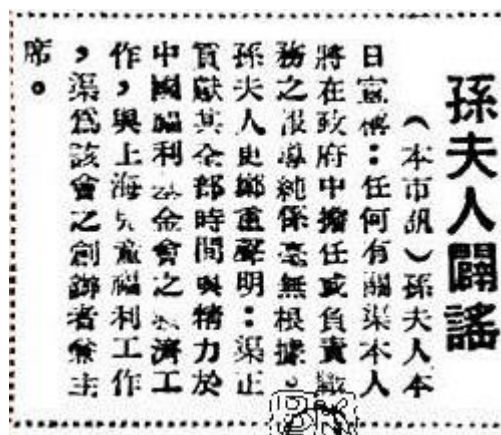 孫夫人闢謠
（本市訊）孫夫人本
日宣佈：任何有關渠本人
將在政府中擔任或負責職
務之報導純係毫無根據。
孫夫人更鄭重聲明：渠正
貢獻其全部時間與精力於
中國福利基金會之救濟工
作，與上海兒童福利工作
，渠為該會之創辦者兼主
席。